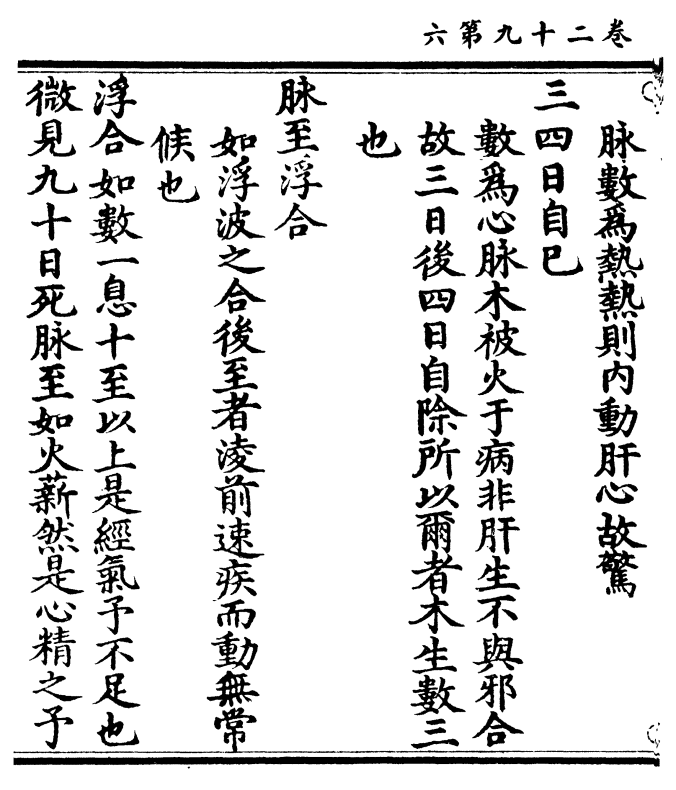 六第九十二卷
脉數爲熱熱則内動肝心故驚
三四日自已
數爲心脉木被火于病非肝生不與邪合
故三日後四日自除所以爾者木生數三
也
脉至浮合
如浮波之合後至者淩前速疾而動無常
候也
浮合如數一息十至以上是經氣予不足也
微見九十日死脉至如火薪然是心精之予